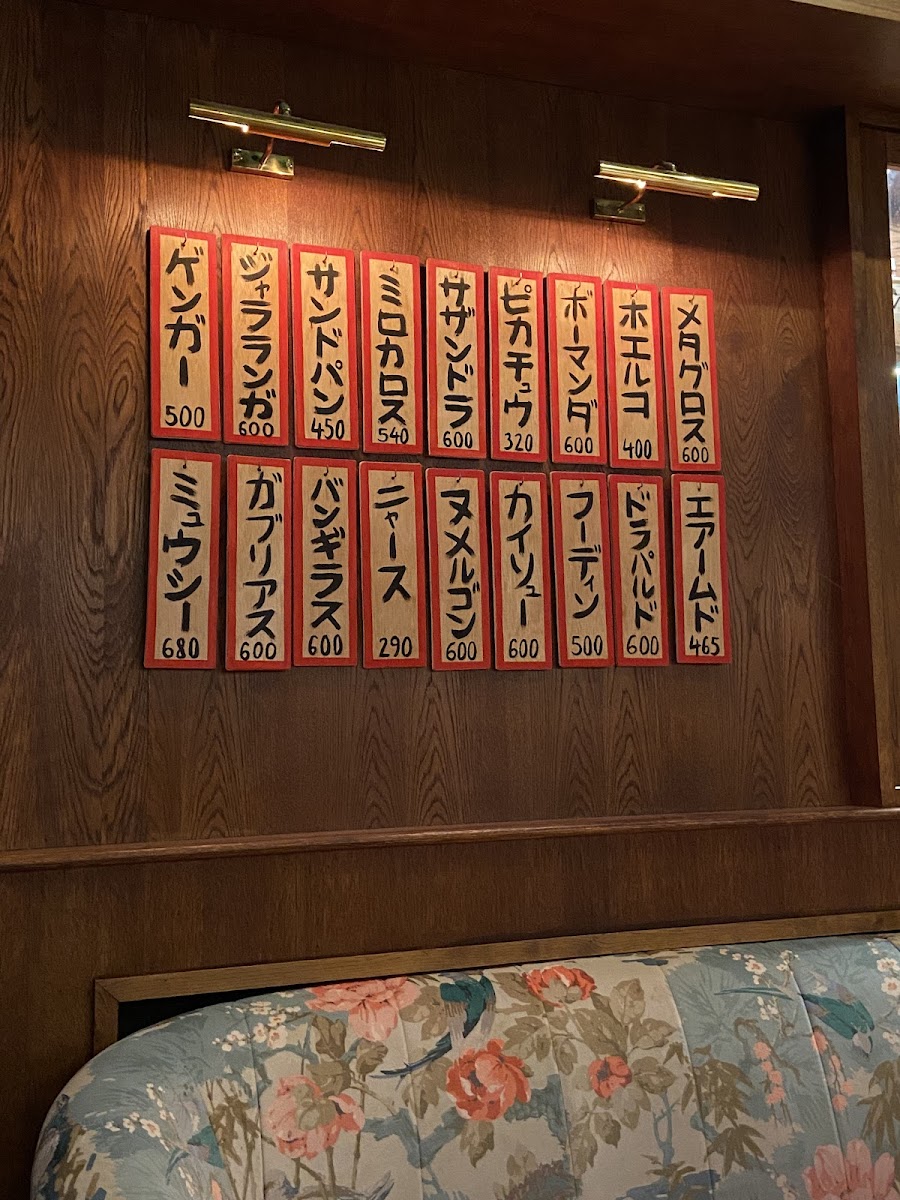 ゲンガー
500
ジャラランガ
600
サンドパン
450
ミロカロス
540
サザンドラ
600
ピカチュウ
320
ボーマンダ
600
ホエルコ
400
メタグロス
600
ミュウシー
680
ガブリアス
600
バンギラス
600
ニャース
290
ヌメルゴン
600
カイリュー
600
フーディン
500
ドラパルド
600
エアームド
465